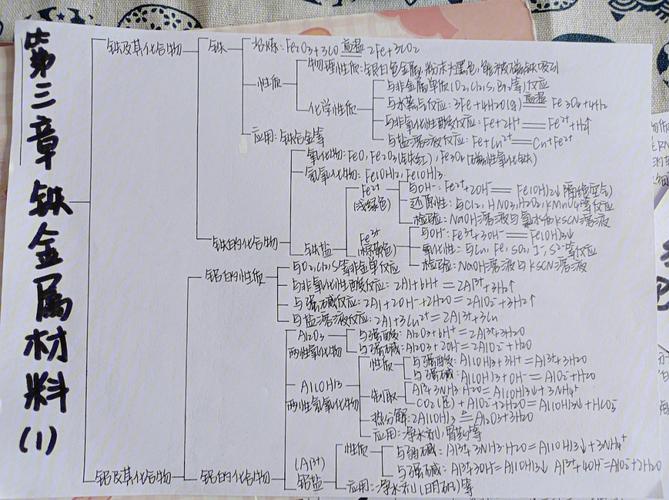 第三章 铁金属材料(1)
铁及其化合物
铁
冶炼: Fe2O3+3CO 高温 2Fe+3CO2
性质
物理性质: 银白色金属,粉末为黑色,能被磁铁吸引
化学性质
与非金属单质(O2,Cl2,S,Br2等)反应
与水蒸气反应: 3Fe+4H2O(g) 高温 Fe3O4+4H2
与非氧化性酸反应: Fe+2H+ = Fe2++H2↑
与盐溶液反应: Fe+Cu2+ = Cu+Fe2+
应用: 铁合金等
铁的化合物
氧化物: FeO, Fe2O3(铁红), Fe3O4(磁性氧化铁)
氢氧化物: Fe(OH)2, Fe(OH)3
铁盐
Fe2+
(浅绿色)
与OH-: Fe2++2OH- = Fe(OH)2↓(隔绝空气)
还原性: 与Cl2, HNO3, H2O2, KMnO4等反应
检验: NaOH溶液或氯水和KSCN溶液
Fe3+
与OH-: Fe3++3OH- = Fe(OH)3↓
氧化性: 与Cu, Fe, SO2, I-, S2-等反应
检验: NaOH溶液或KSCN溶液
铝及其化合物
铝的性质
与O2,Cl2,S等非金属反应
与非氧化性酸反应: 2Al+6H+ = 2Al3++3H2↑
与强碱反应: 2Al+2OH-+2H2O = 2AlO2-+3H2↑
与盐溶液反应: 2Al+3Cu2+ = 2Al3++3Cu
铝的化合物
Al2O3
两性氧化物
与强酸: Al2O3+6H+ = 2Al3++3H2O
与强碱: Al2O3+2OH- = 2AlO2-+H2O
Al(OH)3
两性氢氧化物
性质
与强酸: Al(OH)3+3H+ = Al3++3H2O
与强碱: Al(OH)3+OH- = AlO2-+2H2O
制取
Al3++3NH3·H2O = Al(OH)3↓+3NH4+
CO2(足)+AlO2-+2H2O = Al(OH)3↓+HCO3-
热分解: 2Al(OH)3 = Al2O3+3H2O
应用: 净水剂、胃药等
(Al3+)
铝盐
性质
与弱碱: Al3++3NH3·H2O = Al(OH)3↓+3NH4+
与强碱: Al3++3OH- = Al(OH)3↓ Al3++4OH- = AlO2-+2H2O
应用: 净水剂(明矾)等